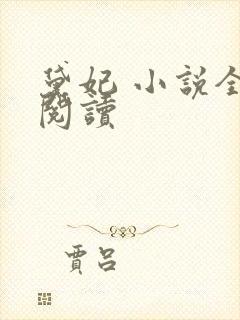 黛妃 小說全
閱讀
賈呂